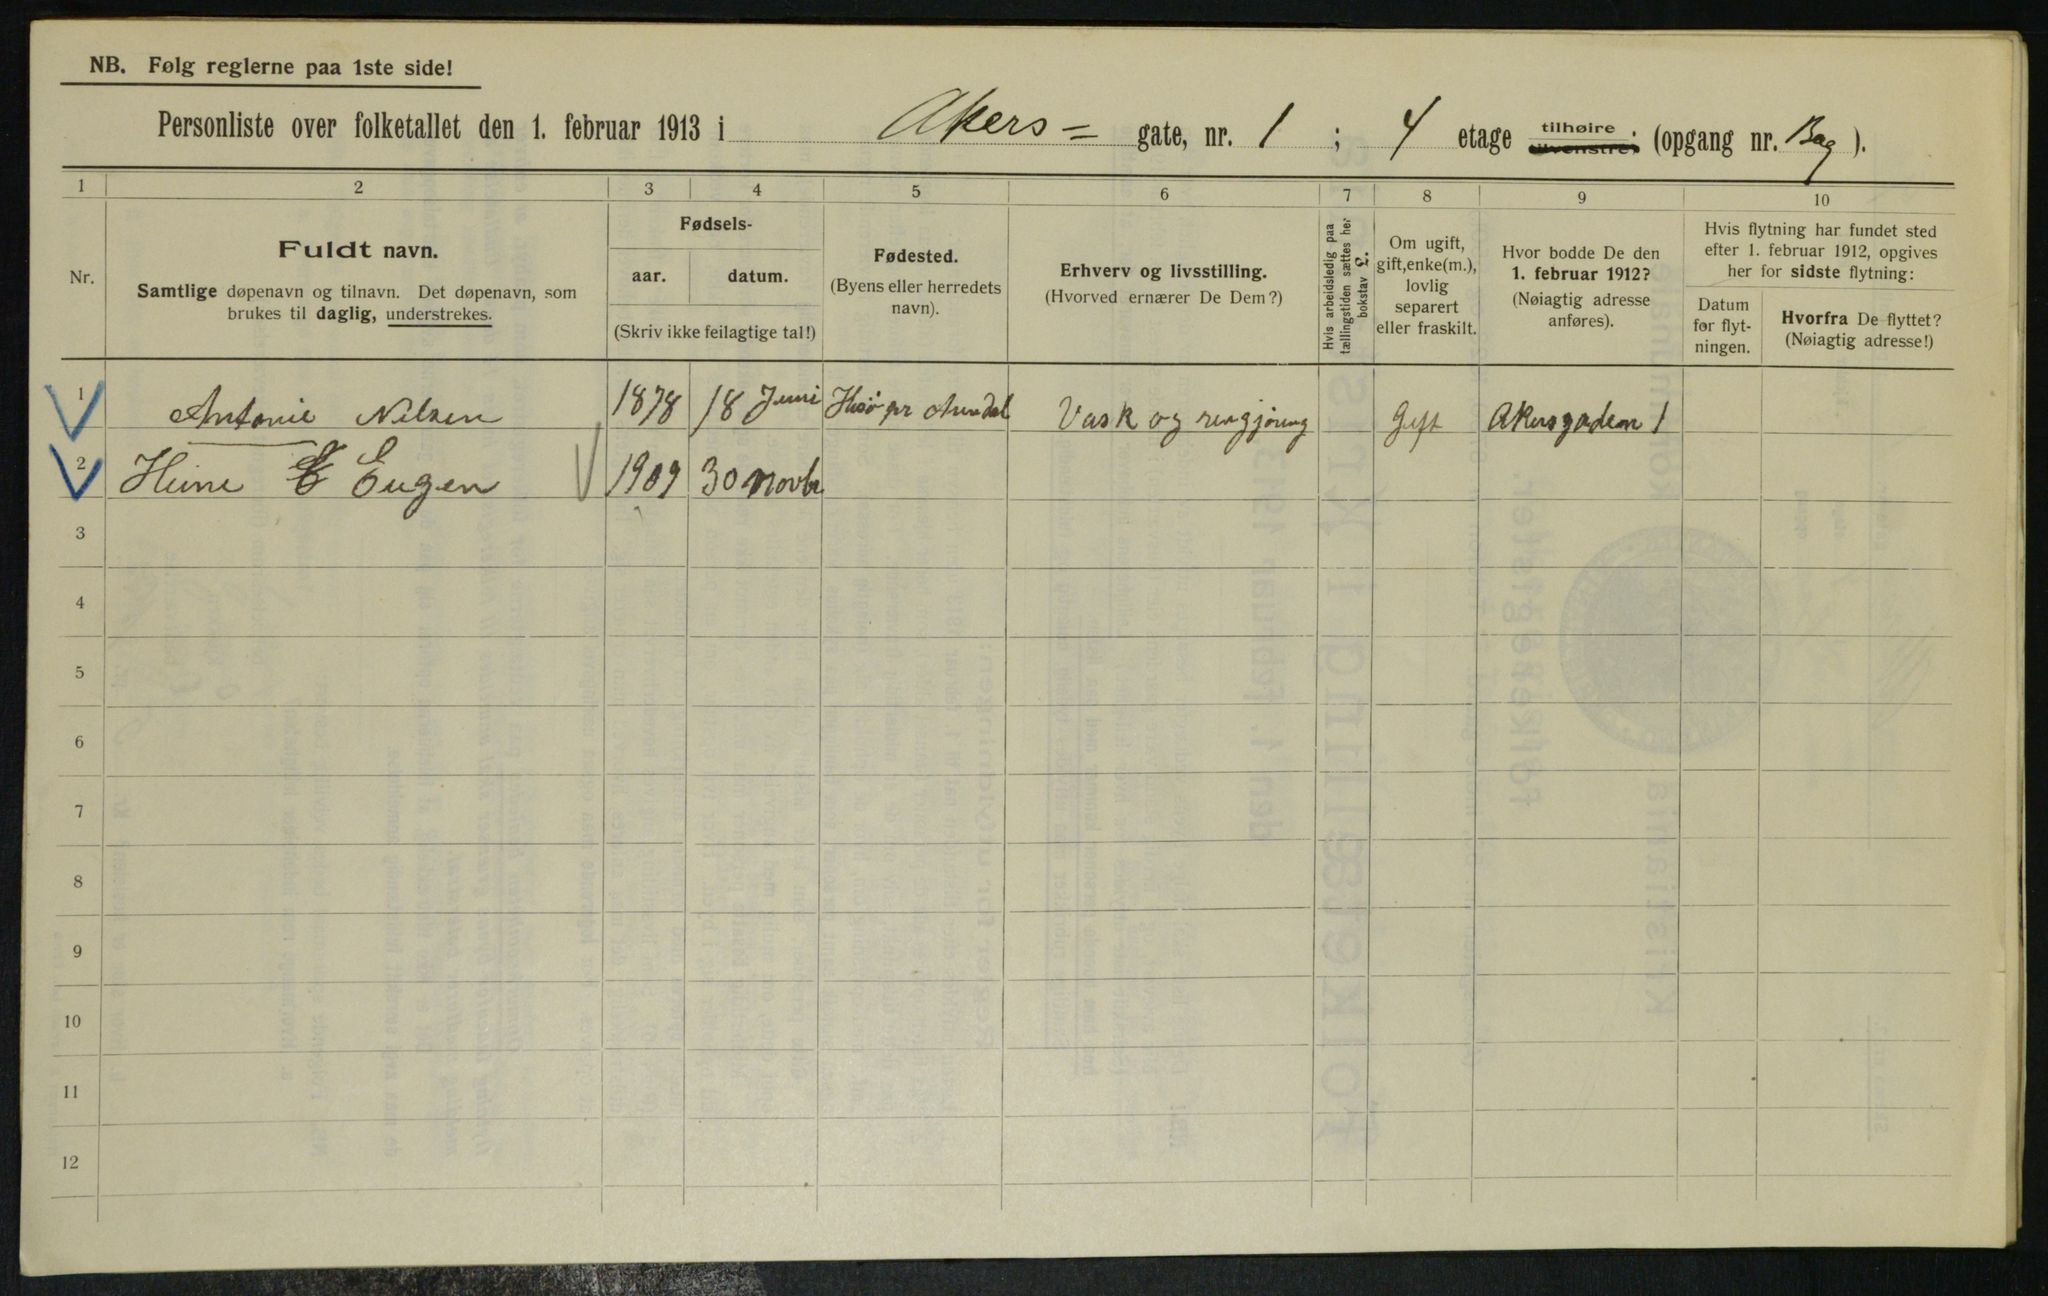 NB. Følg reglerne paa 1ste side!
Personliste over folketallet den 1. februar 1913 i Akers= gate, nr. 1 ; 4 etage tilhøire tilvenstre: (opgang nr. Bag ).
1 2 3 4 5 6 7 8 9 10
Nr.
Fuldt navn.
Samtlige døpenavn og tilnavn. Det døpenavn, som
brukes til daglig, understrekes.
Fødsels-
aar. datum.
(Skriv ikke feilagtige tal!)
Fødested.
(Byens eller herredets
navn).
Erhverv og livsstilling.
(Hvorved ernærer De Dem?)
Hvis arbeidsledig paa
tællingstiden sættes her
bokstav L.
Om ugift,
gift, enke(m.),
lovlig
separert
eller fraskilt.
Hvor bodde De den
1. februar 1912?
(Nøiagtig adresse
anføres).
Hvis flytning har fundet sted
efter 1. februar 1912, opgives
her for sidste flytning:
Datum
for flyt-
ningen.
Hvorfra De flyttet?
(Nøiagtig adresse!)
1 Antonie Nilsen 1878 18 Juni Hisø pr Arendal Vask og rengjøring Gift Akersgaden 1
2 Eugen 1909 30 novbr
3
4
5
6
7
8
9
10
11
12